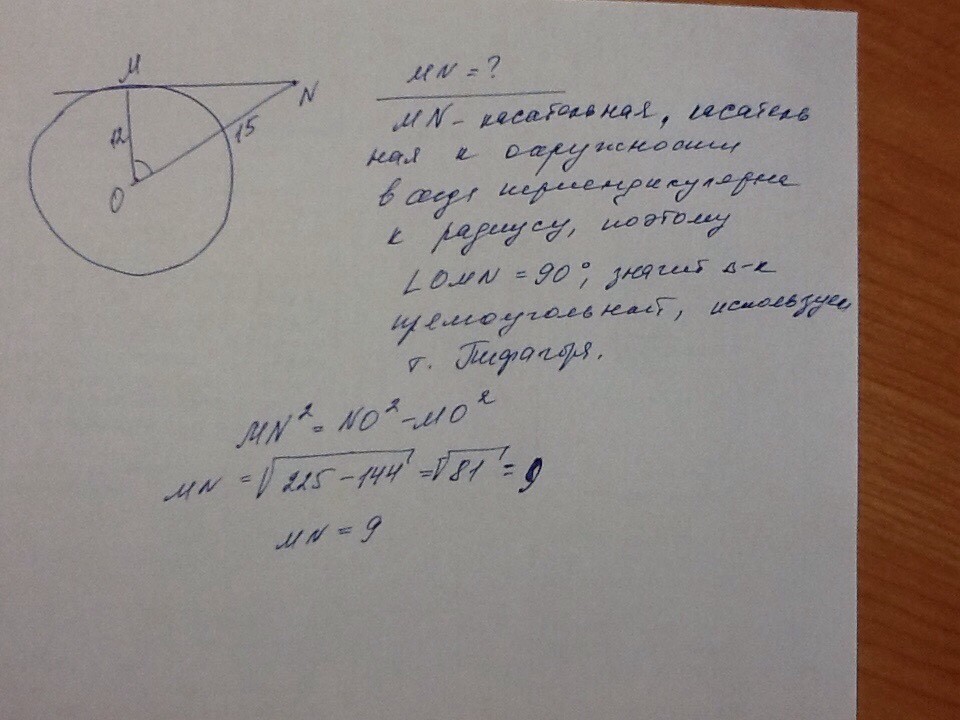 M
N
12
15
O
MN = ?
MN - касательная, касатель
ная к окружности
всегда перпендикулярна
к радиусу, поэтому
∠OMN = 90°, значит Δ-к
прямоугольный, используем
т. Пифагора.
MN² = NO² - MO²
MN = √225 - 144 = √81 = 9
MN = 9